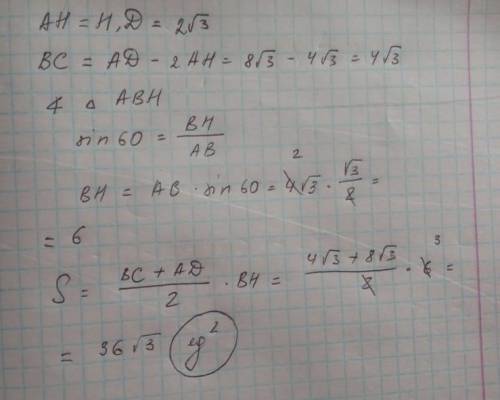 AH = H₁D = 2√3
BC = AD - 2AH = 8√3 - 4√3 = 4√3
∢ △ ABH
sin 60 = BH / AB
BH = AB · sin 60 = 4√3 · √3/2 = 2
= 6
S = (BC + AD)/2 · BH = (4√3 + 8√3)/2 · 6 = 3
= 36√3 eg²